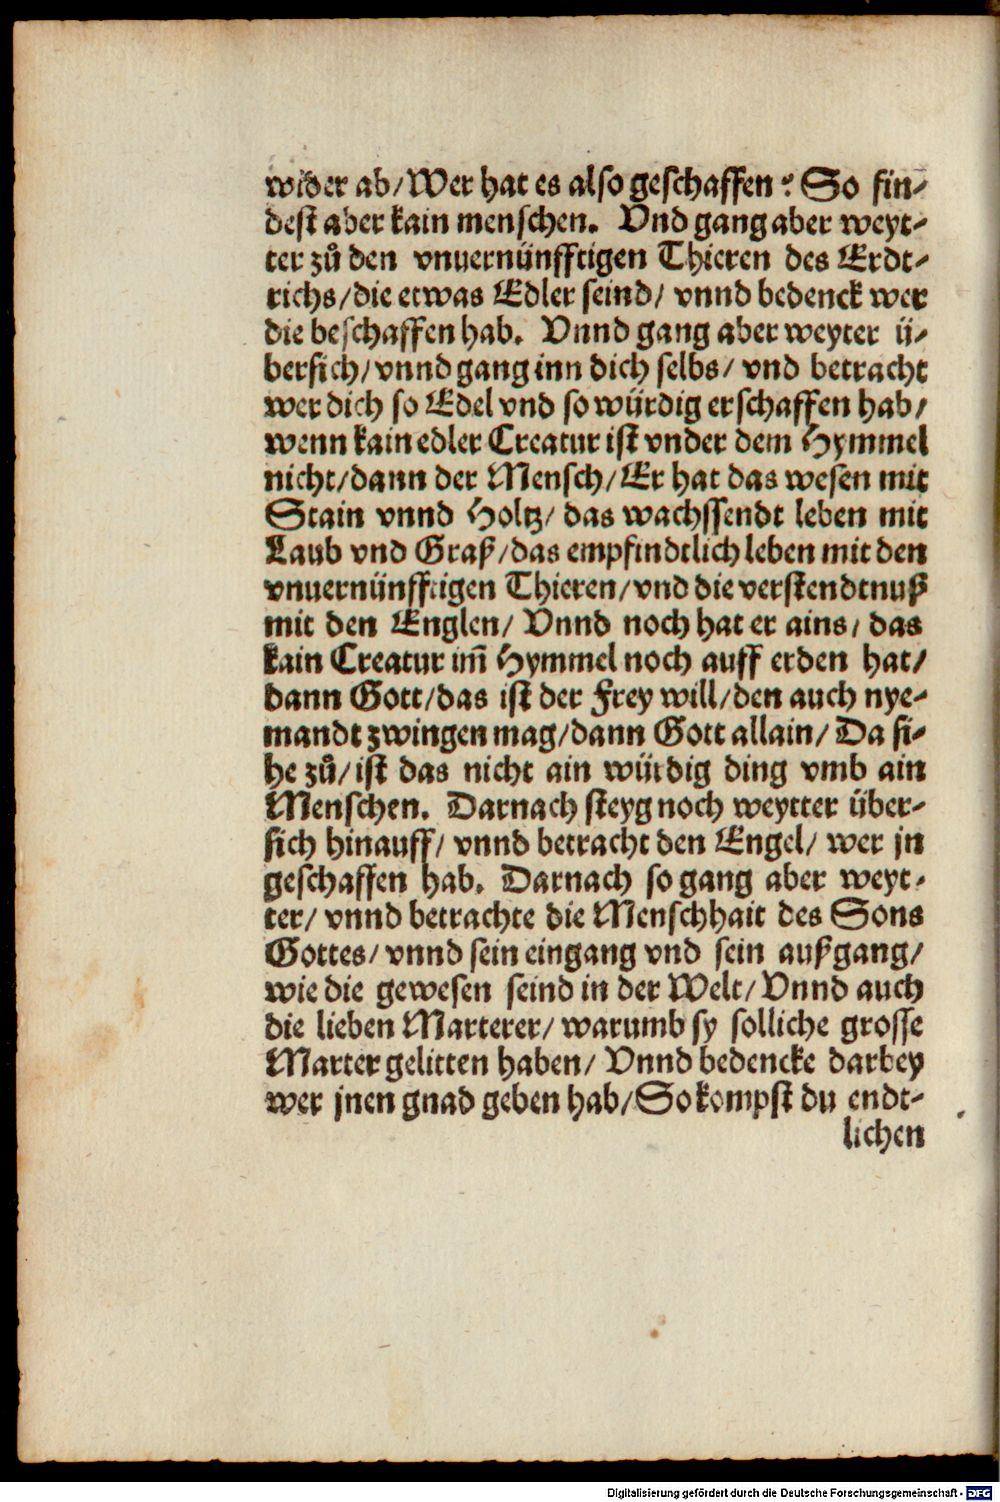 wider ab/Wer hat es also geschaffen? So fin-
dest aber kain menschen. Vnd gang aber weyt-
ter zů den vnuernünfftigen Thieren des Erdt-
richs/die etwas Edler seind/ vnnd bedenck wer
die beschaffen hab. Vnnd gang aber weyter ü-
bersich/vnnd gang inn dich selbs/ vnd betracht
wer dich so Edel vnd so würdig erschaffen hab/
wenn kain edler Creatur ist vnder dem Hymmel
nicht/dann der Mensch/Er hat das wesen mit
Stain vnnd Holtz/ das wachssendt leben mit
Laub vnd Graß/das empfindtlich leben mit den
vnuernünfftigen Thieren/vnd die verstendtnuß
mit den Englen/ Vnnd noch hat er ains/ das
kain Creatur im̃ Hymmel noch auff erden hat/
dann Gott/das ist der Frey will/den auch nye-
mandt zwingen mag/dann Gott allain/ Da si-
he zů/ist das nicht ain würdig ding vmb ain
Menschen. Darnach steyg noch weytter über-
sich hinauff/ vnnd betracht den Engel/ wer jn
geschaffen hab. Darnach so gang aber weyt-
ter/ vnnd betrachte die Menschhait des Sons
Gottes/ vnnd sein eingang vnd sein außgang/
wie die gewesen seind in der Welt/ Vnnd auch
die lieben Marterer/ warumb sy solliche grosse
Marter gelitten haben/ Vnnd bedencke darbey
wer jnen gnad geben hab/So kompst du endt-
lichen
Digitalisierung gefördert durch die Deutsche Forschungsgemeinschaft - DFG